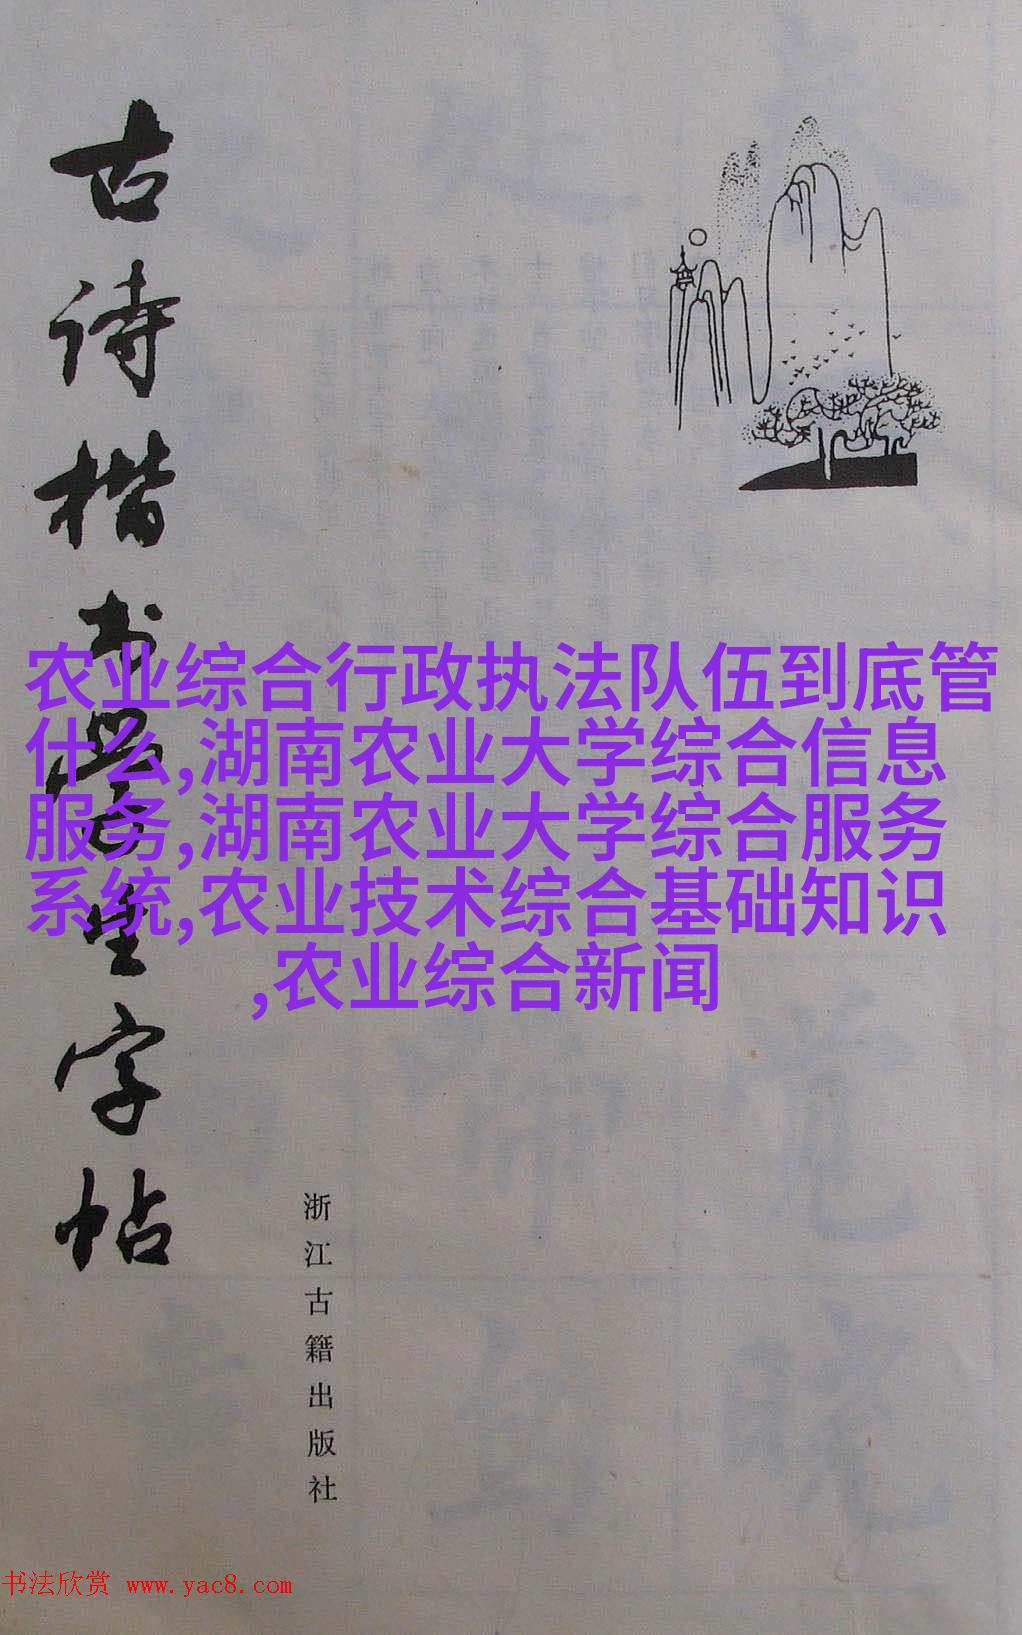 古诗楷书学生字帖
农业综合行政执法队伍到底管
什么,湖南农业大学综合信息
服务,湖南农业大学综合服务
系统,农业技术综合基础知识
,农业综合新闻
浙江古籍出版社
书法欣赏 www.yac8.com